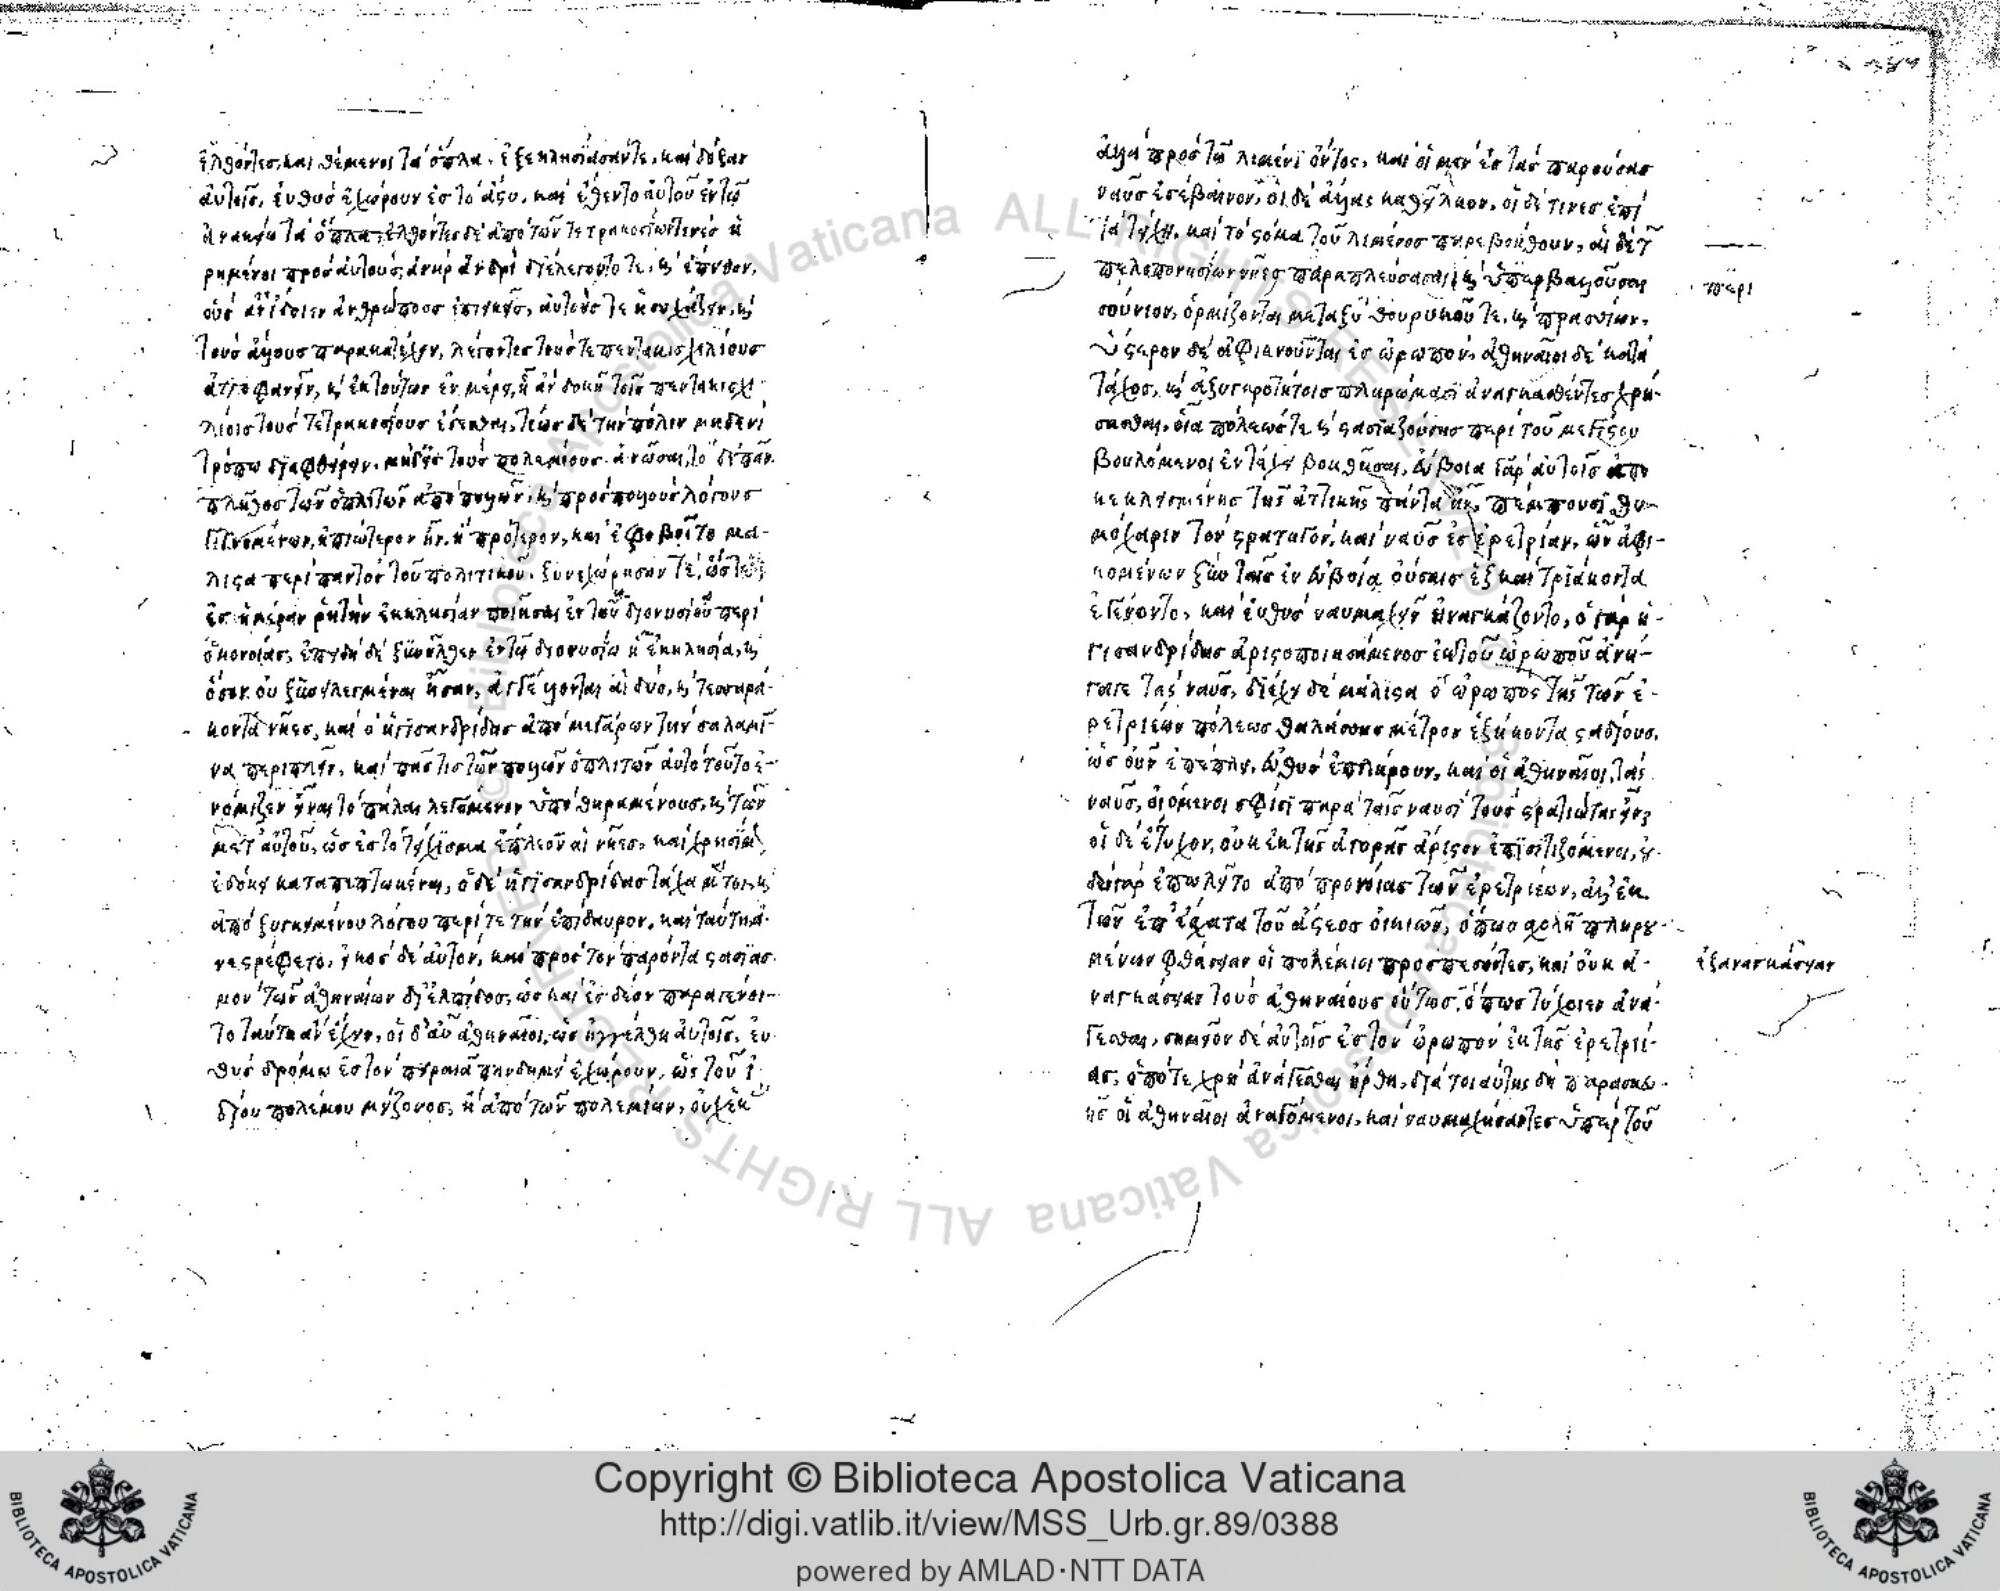 ἐλθόντες, καὶ θέμενοι τὰ ὅπλα, ἐξεκλησίασάν τε, καὶ δόξαν
αὐτοῖς, εὐθὺς ἐχώρουν ἐς τὸ ἄστυ, καὶ ἔθεντο αὐτοῦ ἐν τῷ
ἀνακείω τὰ ὅπλα, ἐλθόντες δὲ ἀπὸ τῶν τετρακοσίων τινὲς ἡ
ρημένοι πρὸς αὐτούς, ἀνὴρ ἀνδρὶ διελέγοντό τε, καὶ ἔπειθον,
οὓς ἂν ἴδοιεν ἀνθρώπους ἐπιεικεῖς, αὐτούς τε ἡσυχάζειν, καὶ
τοὺς ἄλλους παρακατέχειν, λέγοντες τούς τε πεντακισχιλίους
ἀποφανεῖν, καὶ ἐκ τούτων ἐν μέρει, ᾗ ἂν δοκῇ τοῖς πεντακισχι-
λίοις τοὺς τετρακοσίους ἔσεσθαι, τέως δὲ τὴν πόλιν μηδενὶ
τρόπω διαφθείρειν, μηδ' ἐς τοὺς πολεμίους ἀνῶσαι, τὸ δὲ πᾶν
πλῆθος τῶν ὁπλιτῶν ἀπὸ πολλῶν, καὶ πρὸς πολλοὺς λόγους
γιγνομένων, ἠπιώτερον ἦν, ἢ πρότερον, καὶ ἐφοβεῖτο μά-
λιστα περὶ παντὸς τοῦ πολιτικοῦ. ξυνεχώρησάν τε, ὥστε
ἐς ἡμέραν ῥητὴν ἐκκλησίαν ποιῆσαι ἐν τοῦ διονυσίου περὶ
ὁμονοίας, ἐπειδὴ δὲ ξυνῆλθεν ἐν τῷ διονυσίω ἡ ἐκκλησία, καὶ
ὅσον οὐ ξυνειλεγμένοι ἦσαν, ἀγγέλλονται αἱ δύο, καὶ τεσσαρά-
κοντα νῆες, καὶ ὁ ἡγισανδρίδας ἀπὸ μεγάρων τὴν σαλαμῖ-
να περιπλεῖν, καὶ πᾶς τις τῶν πολλῶν ὁπλιτῶν αὐτὸ τοῦτο ἐ-
νόμιζεν εἶναι τὸ πάλαι λεγόμενον ὑπὸ θηραμένους, καὶ τῶν
μετ' αὐτοῦ, ὡς ἐς τὸ τείχισμα ἔπλεον αἱ νῆες, καὶ χρησίμως
ἐδόκει καταπεπτωκέναι, ὁ δὲ ἡγισανδρίδας τάχα μέν τοι, καὶ
ἀπὸ ξυγκειμένου λόγου περί τε τὴν ἐπίδαυρον, καὶ ταύτῃ ἀ-
νεστρέφετο, εἰκὸς δὲ αὐτόν, καὶ πρὸς τὸν παρόντα στασιασ-
μὸν τῶν ἀθηναίων δι' ἐλπίδος, ὡς καὶ ἐς δέον παραγένοι-
το ταύτῃ ἀνέχειν, οἱ δ' αὖ ἀθηναῖοι, ὡς ἠγγέλθη αὐτοῖς, εὐ-
θὺς δρόμω ἐς τὸν πειραιᾶ πανδημεὶ ἐχώρουν, ὡς τοῦ ἰ-
δίου πολέμου μείζονος, ἢ ἀπὸ τῶν πολεμίων, οὐχ ἑκ
ἀλλὰ πρὸς τῷ λιμένι ὄντος, καὶ οἱ μὲν ἐς τὰς παρούσας
ναῦς ἐσέβαινον, οἱ δὲ ἄλλας καθεῖλκον, οἱ δέ τινες ἐπὶ
τὰ τείχη, καὶ τὸ στόμα τοῦ λιμένος παρεβοήθουν, αἱ δὲ τῶν
πελοποννησίων νῆες παραπλεύσασαι, καὶ ὑπερβαλοῦσαι
περι
σούνιον, ὁρμίζονται μεταξὺ θουρικοῦ τε, καὶ πρασιῶν,
ὕστερον δὲ ἀφικνοῦνται ἐς ὠρωπόν, ἀθηναῖοι δὲ κατὰ
τάχος, καὶ ἀξυγκροτήτοις πληρώμασιν ἀναγκασθέντες χρή-
σασθαι, οἷα πόλεώς τε καὶ στασιαζούσης περὶ τοῦ μεγίστου
βουλόμενοι ἐν τάχει βοηθῆσαι, εὔβοια γὰρ αὐτοῖς ἀπο
κεκλεισμένης τῆς ἀττικῆς πάντα ἦν, πέμπουσι θυ-
μόχαριν τὸν στρατηγόν, καὶ ναῦς ἐς ἐρετρίαν, ὧν ἀφι-
κομένων ξὺν ταῖς ἐν εὐβοία οὔσαις ἓξ καὶ τριάκοντα
ἐγένοντο, καὶ εὐθὺς ναυμαχεῖν ἠναγκάζοντο, ὁ γὰρ ἡ-
γισανδρίδας ἀριστοποιησάμενος ἐκ τοῦ ὠρωποῦ ἀνή-
γαγε τὰς ναῦς, διέχει δὲ μάλιστα ὁ ὠρωπὸς τῆς τῶν ἐ-
ρετριέων πόλεως θαλάσσης μέτρον ἑξήκοντα σταδίους,
ὡς οὖν ἐπέπλει, εὐθὺς ἐπλήρουν, καὶ οἱ ἀθηναῖοι, τὰς
ναῦς, οἰόμενοι σφίσι παρὰ ταῖς ναυσὶ τοὺς στρατιώτας εἶναι,
οἱ δὲ ἔτυχον, οὐκ ἐκ τῆς ἀγορᾶς ἄριστον ἐπισιτιζόμενοι, οὐ-
δὲν γὰρ ἐπωλεῖτο ἀπὸ προνοίας τῶν ἐρετριέων, ἀλλ' ἐκ
τῶν ἐπ' ἔσχατα τοῦ ἄστεος οἰκιῶν, ὅπως σχολῇ πληρου-
μένων φθάσειαν οἱ πολέμιοι προσπεσόντες, καὶ οὐκ ἀ-
ἐξαναγκάσειαν
ναγκάσειαν τοὺς ἀθηναίους οὕτως, ὅπως τύχοιεν ἀνά-
γεσθαι, σημεῖον δὲ αὐτοῖς ἐς τὸν ὠρωπὸν ἐκ τῆς ἐρετρί-
ας, ὁπότε χρὴ ἀνάγεσθαι ἤρθη, διὰ τοιαύτης δὴ παρασκευ-
ῆς οἱ ἀθηναῖοι ἀναγόμενοι, καὶ ναυμαχήσαντες ὑπὲρ τοῦ
Copyright © Biblioteca Apostolica Vaticana
http://digi.vatlib.it/view/MSS_Urb.gr.89/0388
powered by AMLAD·NTT DATA
BIBLIOTECA APOSTOLICA VATICANA
BIBLIOTECA APOSTOLICA VATICANA